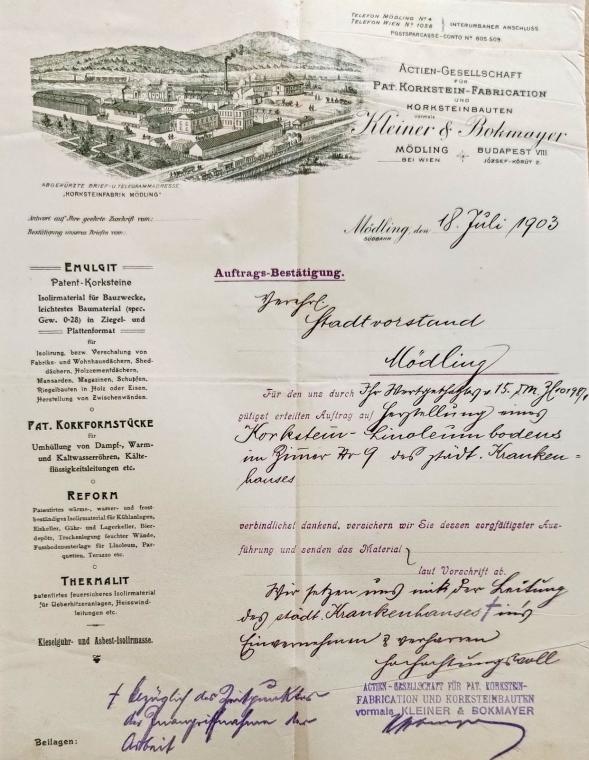 TELEFON MÖDLING No 4
TELEFON WIEN No 1058
INTERURBANER ANSCHLUSS.
POSTSPARCASSE-CONTO No 805.509.
ACTIEN-GESELLSCHAFT
FÜR
PAT. KORKSTEIN-FABRICATION
UND
KORKSTEINBAUTEN
vormals
Kleiner & Bokmayer
MÖDLING BUDAPEST VIII
BEI WIEN JÓZSEF-KÖRÚT 2.
ABGEKÜRZTE BRIEF- U. TELEGRAMMADRESSE
„KORKSTEINFABRIK MÖDLING“
Antwort auf Ihre geehrte Zuschrift vom:
Bestätigung unseres Briefes vom:
Mödling, den 18. Juli 1903
SÜDBAHN
EMULGIT
Patent-Korksteine
Isolirmaterial für Bauzwecke,
leichtestes Baumaterial (spec.
Gew. 0·28) in Ziegel- und
Plattenformat
für
Isolirung, bezw. Verschalung von
Fabriks- und Wohnhausdächern, Shed-
dächern, Holzcementdächern,
Mansarden, Magazinen, Schupfen,
Riegelbauten in Holz oder Eisen,
Herstellung von Zwischenwänden.
PAT. KORKFORMSTÜCKE
für
Umhüllung von Dampf-, Warm-
und Kaltwasserröhren, Kälte-
flüssigkeitsleitungen etc.
REFORM
Patentirtes wärme-, wasser- und frost-
beständiges Isolirmaterial für Kühlanlagen,
Eiskeller, Gähr- und Lagerkeller, Bier-
depôts, Trockenlegung feuchter Wände,
Fussbodenunterlage für Linoleum, Par-
quetten, Terazzo etc.
THERMALIT
patentirtes feuersicheres Isolirmaterial
für Ueberhitzeranlagen, Heisswind-
leitungen etc.
Kieselguhr- und Asbest-Isolirmasse.
Auftrags-Bestätigung.
Verehrl.
Stadtvorstand
Mödling
Für den uns durch Ihr Wertgeschätztes v. 15.
gütigst erteilten Auftrag auf Herstellung eines
Korkstein-Linoleumbodens
im Zimer Nr 9 des städt. Kranken=
hauses
verbindlichst dankend, versichern wir Sie dessen sorgfältigster Aus-
führung und senden das Material
laut Vorschrift ab.
Wir setzen uns mit der Leitung
des städt. Krankenhauses † in's
Einvernehmen & verharren
hochachtungsvoll
ACTIEN-GESELLSCHAFT FÜR PAT. KORKSTEIN-
FABRICATION UND KORKSTEINBAUTEN
vormals KLEINER & BOKMAYER
† bezüglich des Zeitpunktes
der Inangriffnahme der
Arbeit
Beilagen: